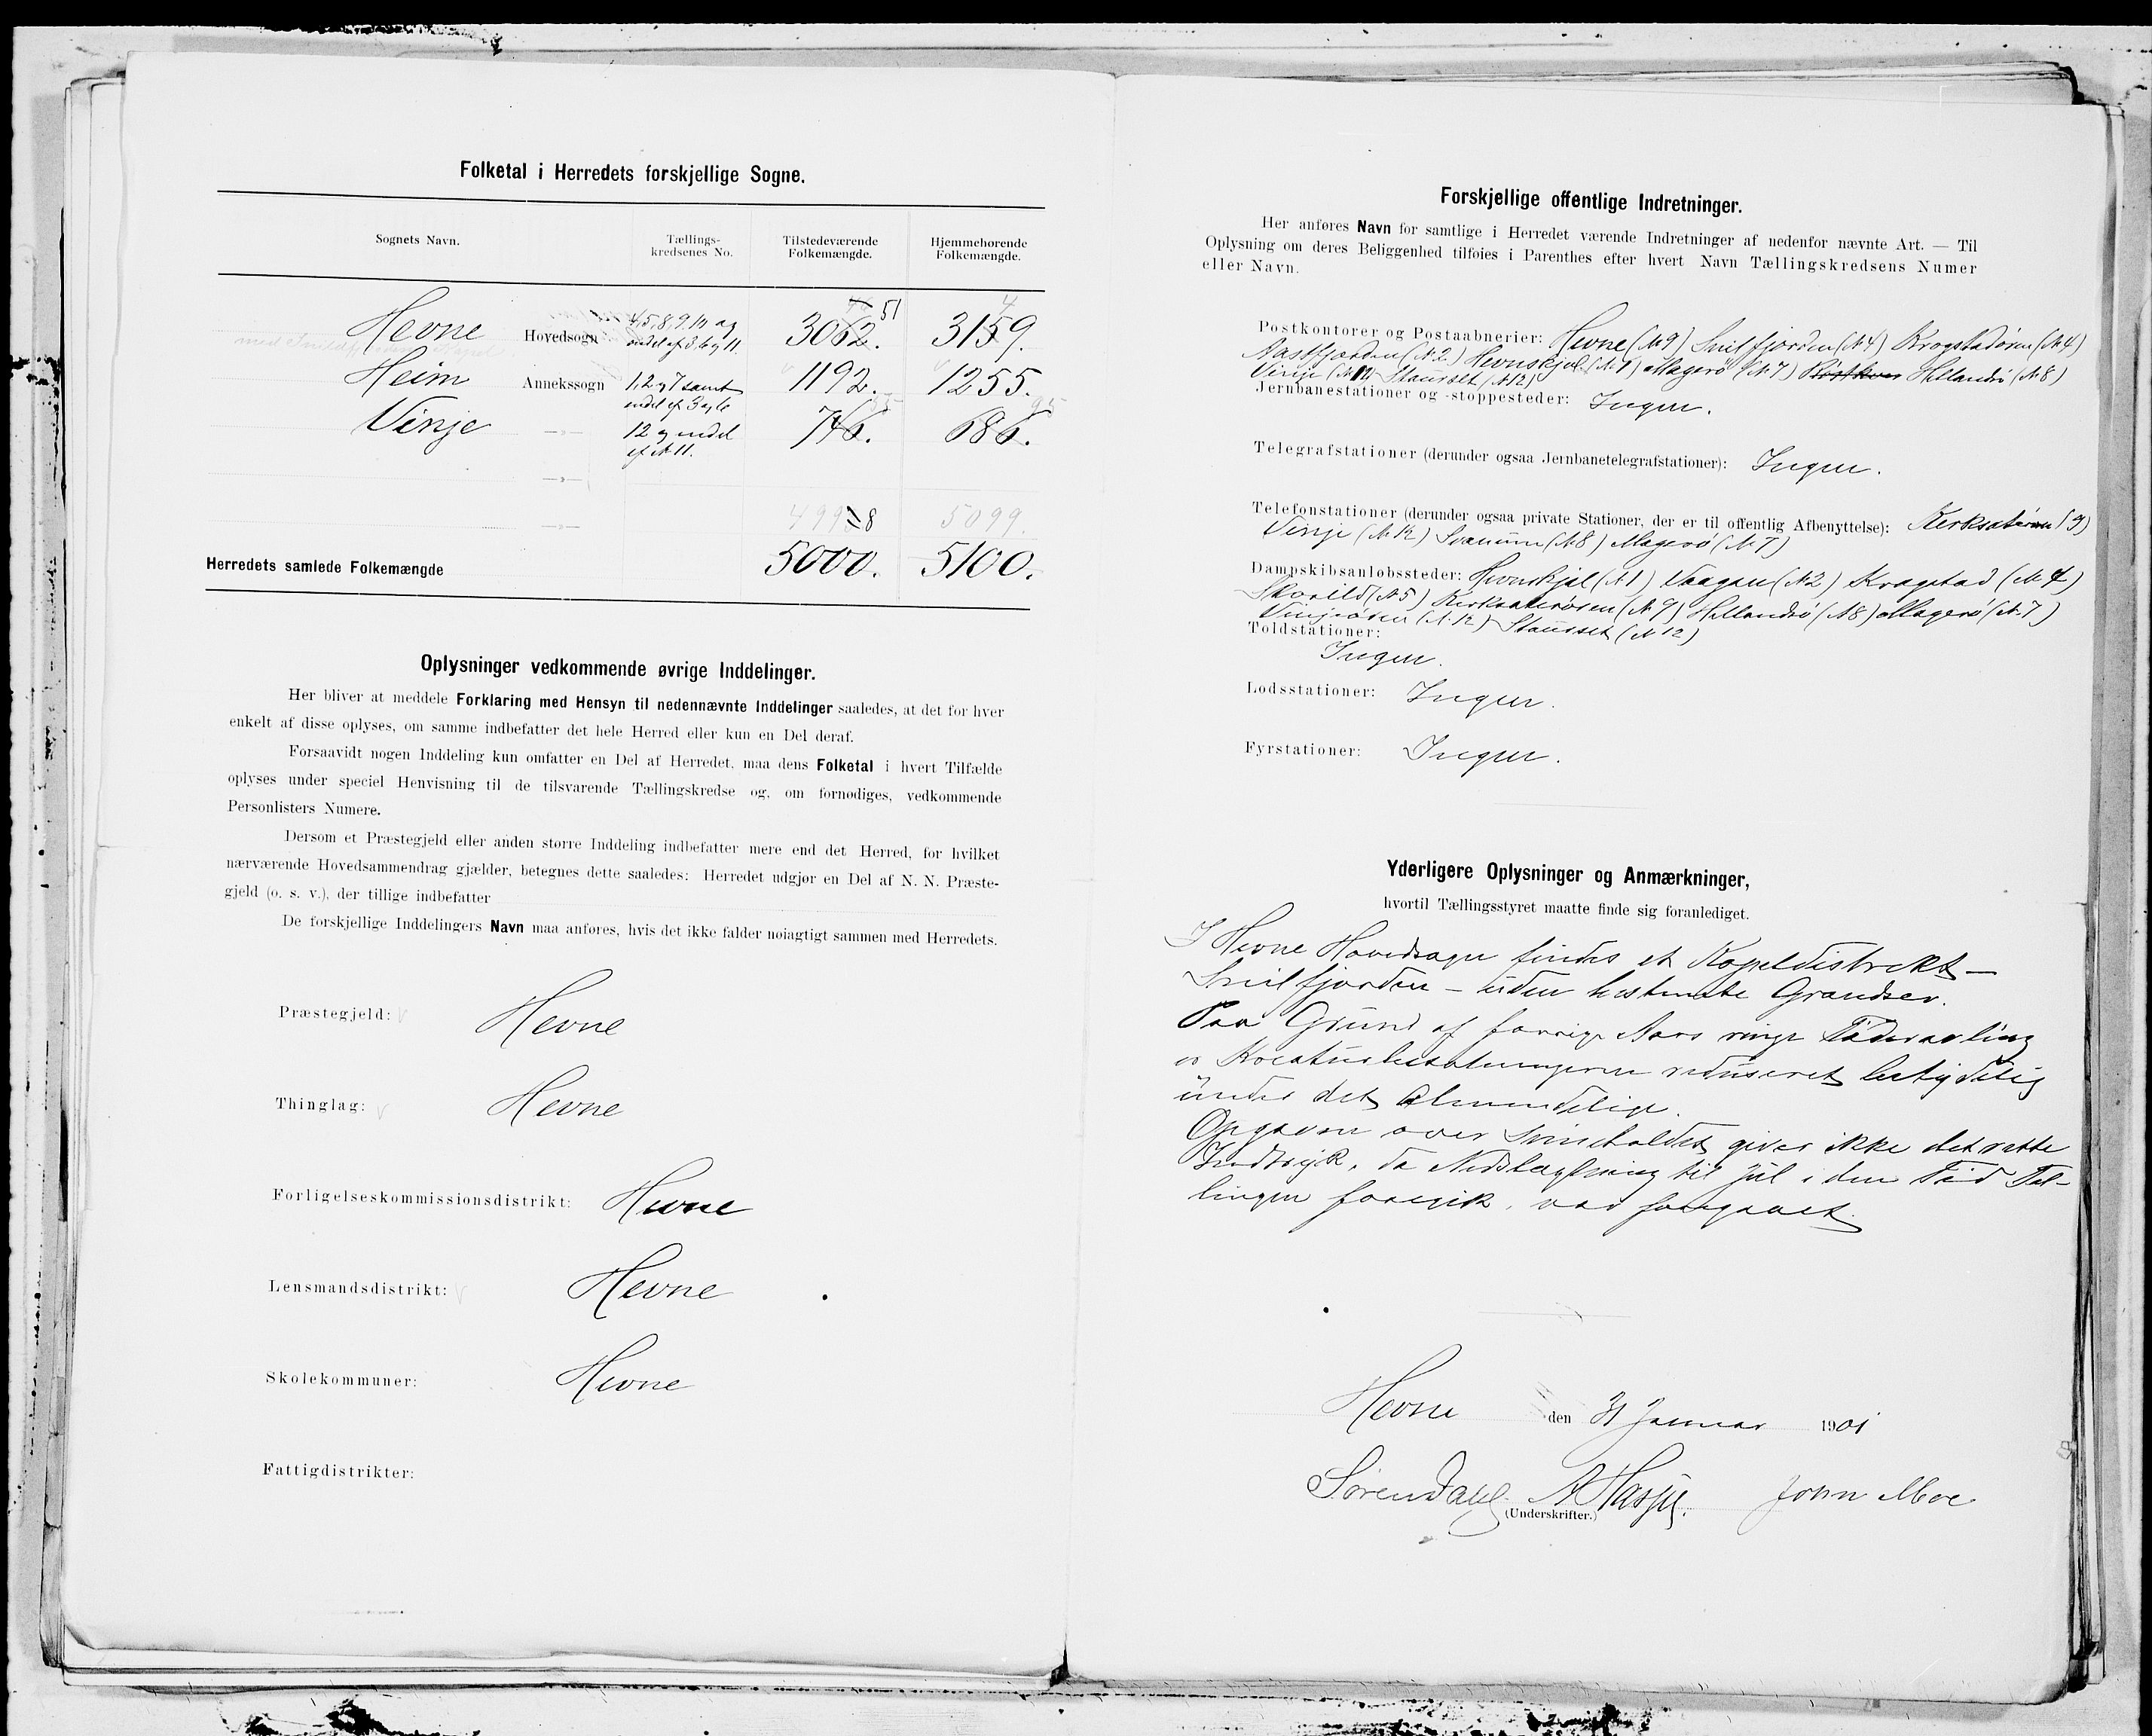 Folketal i Herredets forskjellige Sogne.
Sognets Navn.
Tællings-
kredsenes No.
Tilstedeværende
Folkemængde.
Hjemmehørende
Folkemængde.
Hevne Hovedsogn 4,5,8,9,10 og 3062. 51 3159. 4
endel af 3,6 og 11.
Heim Annekssogn 1,2 og 7 samt 1192. 1255.
endel af 3 og 6
Vinje —»— 12 og endel 746. 55 686. 95
af № 11.
—»—
—»— 4998 5099.
Herredets samlede Folkemængde 5000. 5100.
Oplysninger vedkommende øvrige Inddelinger.
Her bliver at meddele Forklaring med Hensyn til nedennævnte Inddelinger saaledes, at det for hver
enkelt af disse oplyses, om samme indbefatter det hele Herred eller kun en Del deraf.
Forsaavidt nogen Inddeling kun omfatter en Del af Herredet, maa dens Folketal i hvert Tilfælde
oplyses under speciel Henvisning til de tilsvarende Tællingskredse og, om fornødiges, vedkommende
Personlisters Numere.
Dersom et Præstegjeld eller anden større Inddeling indbefatter mere end det Herred, for hvilket
nærværende Hovedsammendrag gjælder, betegnes dette saaledes: Herredet udgjør en Del af N. N. Præste-
gjeld (o. s. v.), der tillige indbefatter
De forskjellige Inddelingers Navn maa anføres, hvis det ikke falder nøiagtigt sammen med Herredets.
Præstegjeld: Hevne
Thinglag: Hevne
Forligelseskommissionsdistrikt: Hevne
Lensmandsdistrikt: Hevne
Skolekommuner: Hevne
Fattigdistrikter:
Forskjellige offentlige Indretninger.
Her anføres Navn for samtlige i Herredet værende Indretninger af nedenfor nævnte Art. — Til
Oplysning om deres Beliggenhed tilføies i Parenthes efter hvert Navn Tællingskredsens Numer
eller Navn.
Postkontorer og Postaabnerier: Hevne (№ 9) Snilfjorden (№ 4) Krogstadøren (№ 4)
Aastfjorden (№ 2) Hevnskjel (№ 1) Magerø (№ 7) Hellandsø (№ 8)
Vinje (№ 12) Staurset (№ 12)
Jernbanestationer og -stoppesteder: Ingen.
Telegrafstationer (derunder ogsaa Jernbanetelegrafstationer): Ingen.
Telefonstationer (derunder ogsaa private Stationer, der er til offentlig Afbenyttelse): Kirksæterøren (9)
Vinje (№ 12) Svanem (№ 8) Magerø (№ 7)
Dampskibsanløbssteder: Hevnskjel (№ 1) Vaagan (№ 2) Krogstad (№ 4)
Skorild (№ 5) Kirksæterøren (№ 9) Hellandsø (№ 8) Magerø (№ 7)
Vinjeøren (№ 12) Staurset (№ 12)
Toldstationer:
Ingen.
Lodsstationer: Ingen.
Fyrstationer: Ingen.
Yderligere Oplysninger og Anmærkninger,
hvortil Tællingsstyret maatte finde sig foranlediget.
I Hevne Hovedsogn findes et Kapeldistrikt —
Snilfjorden – uden bestemte Grændser.
Paa Grund af forrige Aars ringe Foderavling
er Kreaturbesætningerne reduseret betydelig
under det Almindelige.
Opgaven over Svineholdet giver ikke det rette
Indtryk, da Nedslagtning til Jul i den Tid Tæl-
lingen foregik, var foregaaet.
Hevne den 31 Januar 1901
Søren Dahl. A Hasfjel. John Moe
(Underskrifter.)